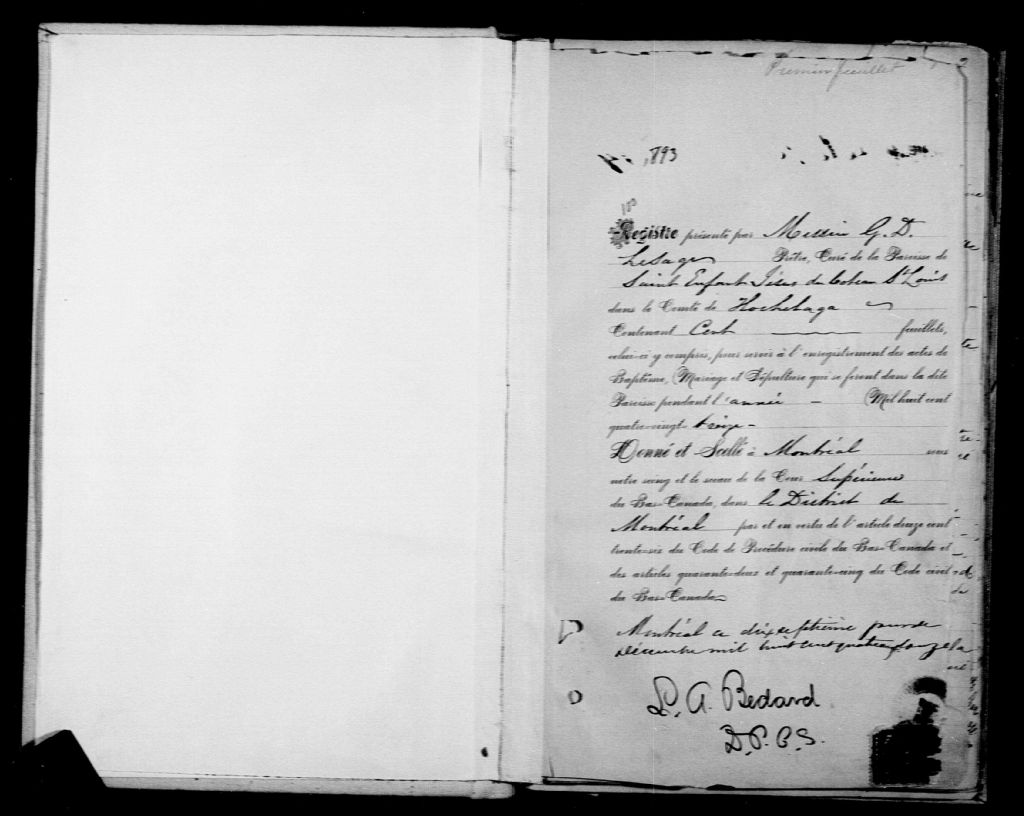 Premier feuillet
1893
100
Registre présenté par Messire G. D.
LeSage Prêtre, Curé de la Paroisse de
Saint Enfant Jésus du Coteau St Louis
dans le Comté de Hochelaga
Contenant Cent feuillets,
celui-ci y compris, pour servir à l'enregistrement des actes de
Baptême, Mariage et Sépulture qui se feront dans la dite
Paroisse pendant l'année - Mil huit cent
quatre-vingt treize -
Donné et Scellé à Montréal sous
notre seing et le sceau de la Cour Supérieure
du Bas-Canada, dans le District de
Montréal par et en vertu de l'article douze cent
trente-six du Code de Procédure civile du Bas-Canada et
des articles quarante-deux et quarante-cinq du Code civil
du Bas-Canada
Montréal ce dix septième jour de
décembre mil huit cent quatre
L. A. Bedard
D. P. C. S.